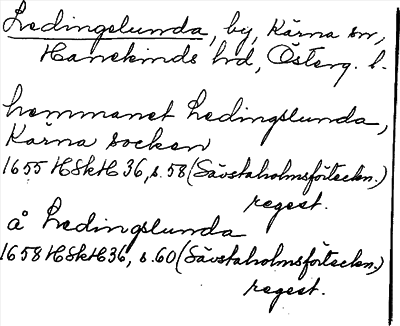 Ledingslunda, by, Kärna sn,
Hanekinds hd, Österg. l.
hemmanet Ledingslunda,
Kärna socken
1655 HSkH 36, s. 58 (Sävstaholmsförteckn.)
regest.
å Ledingslunda
1658 HSkH 36, s. 60 (Sävstaholmsförteckn.)
regest.